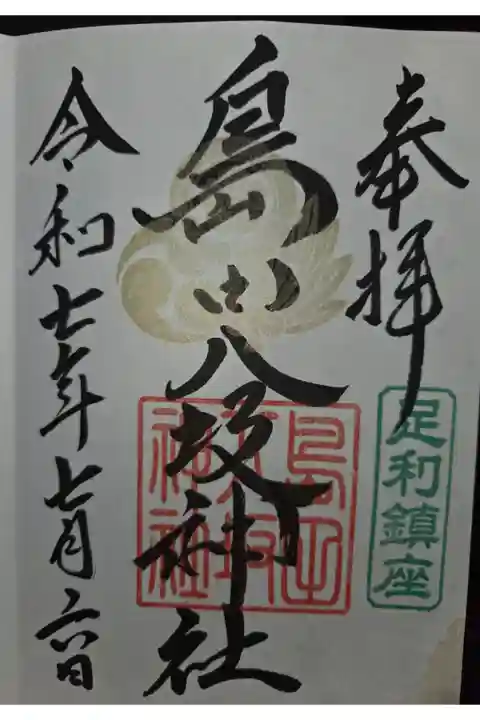 奉拝
足利鎮座
島田八坂神社
島田
八坂
神社
令和七年七月六日